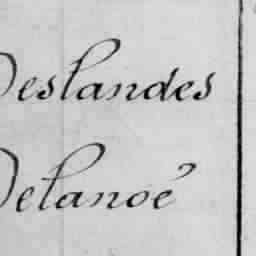 Deslandes
Delanoé